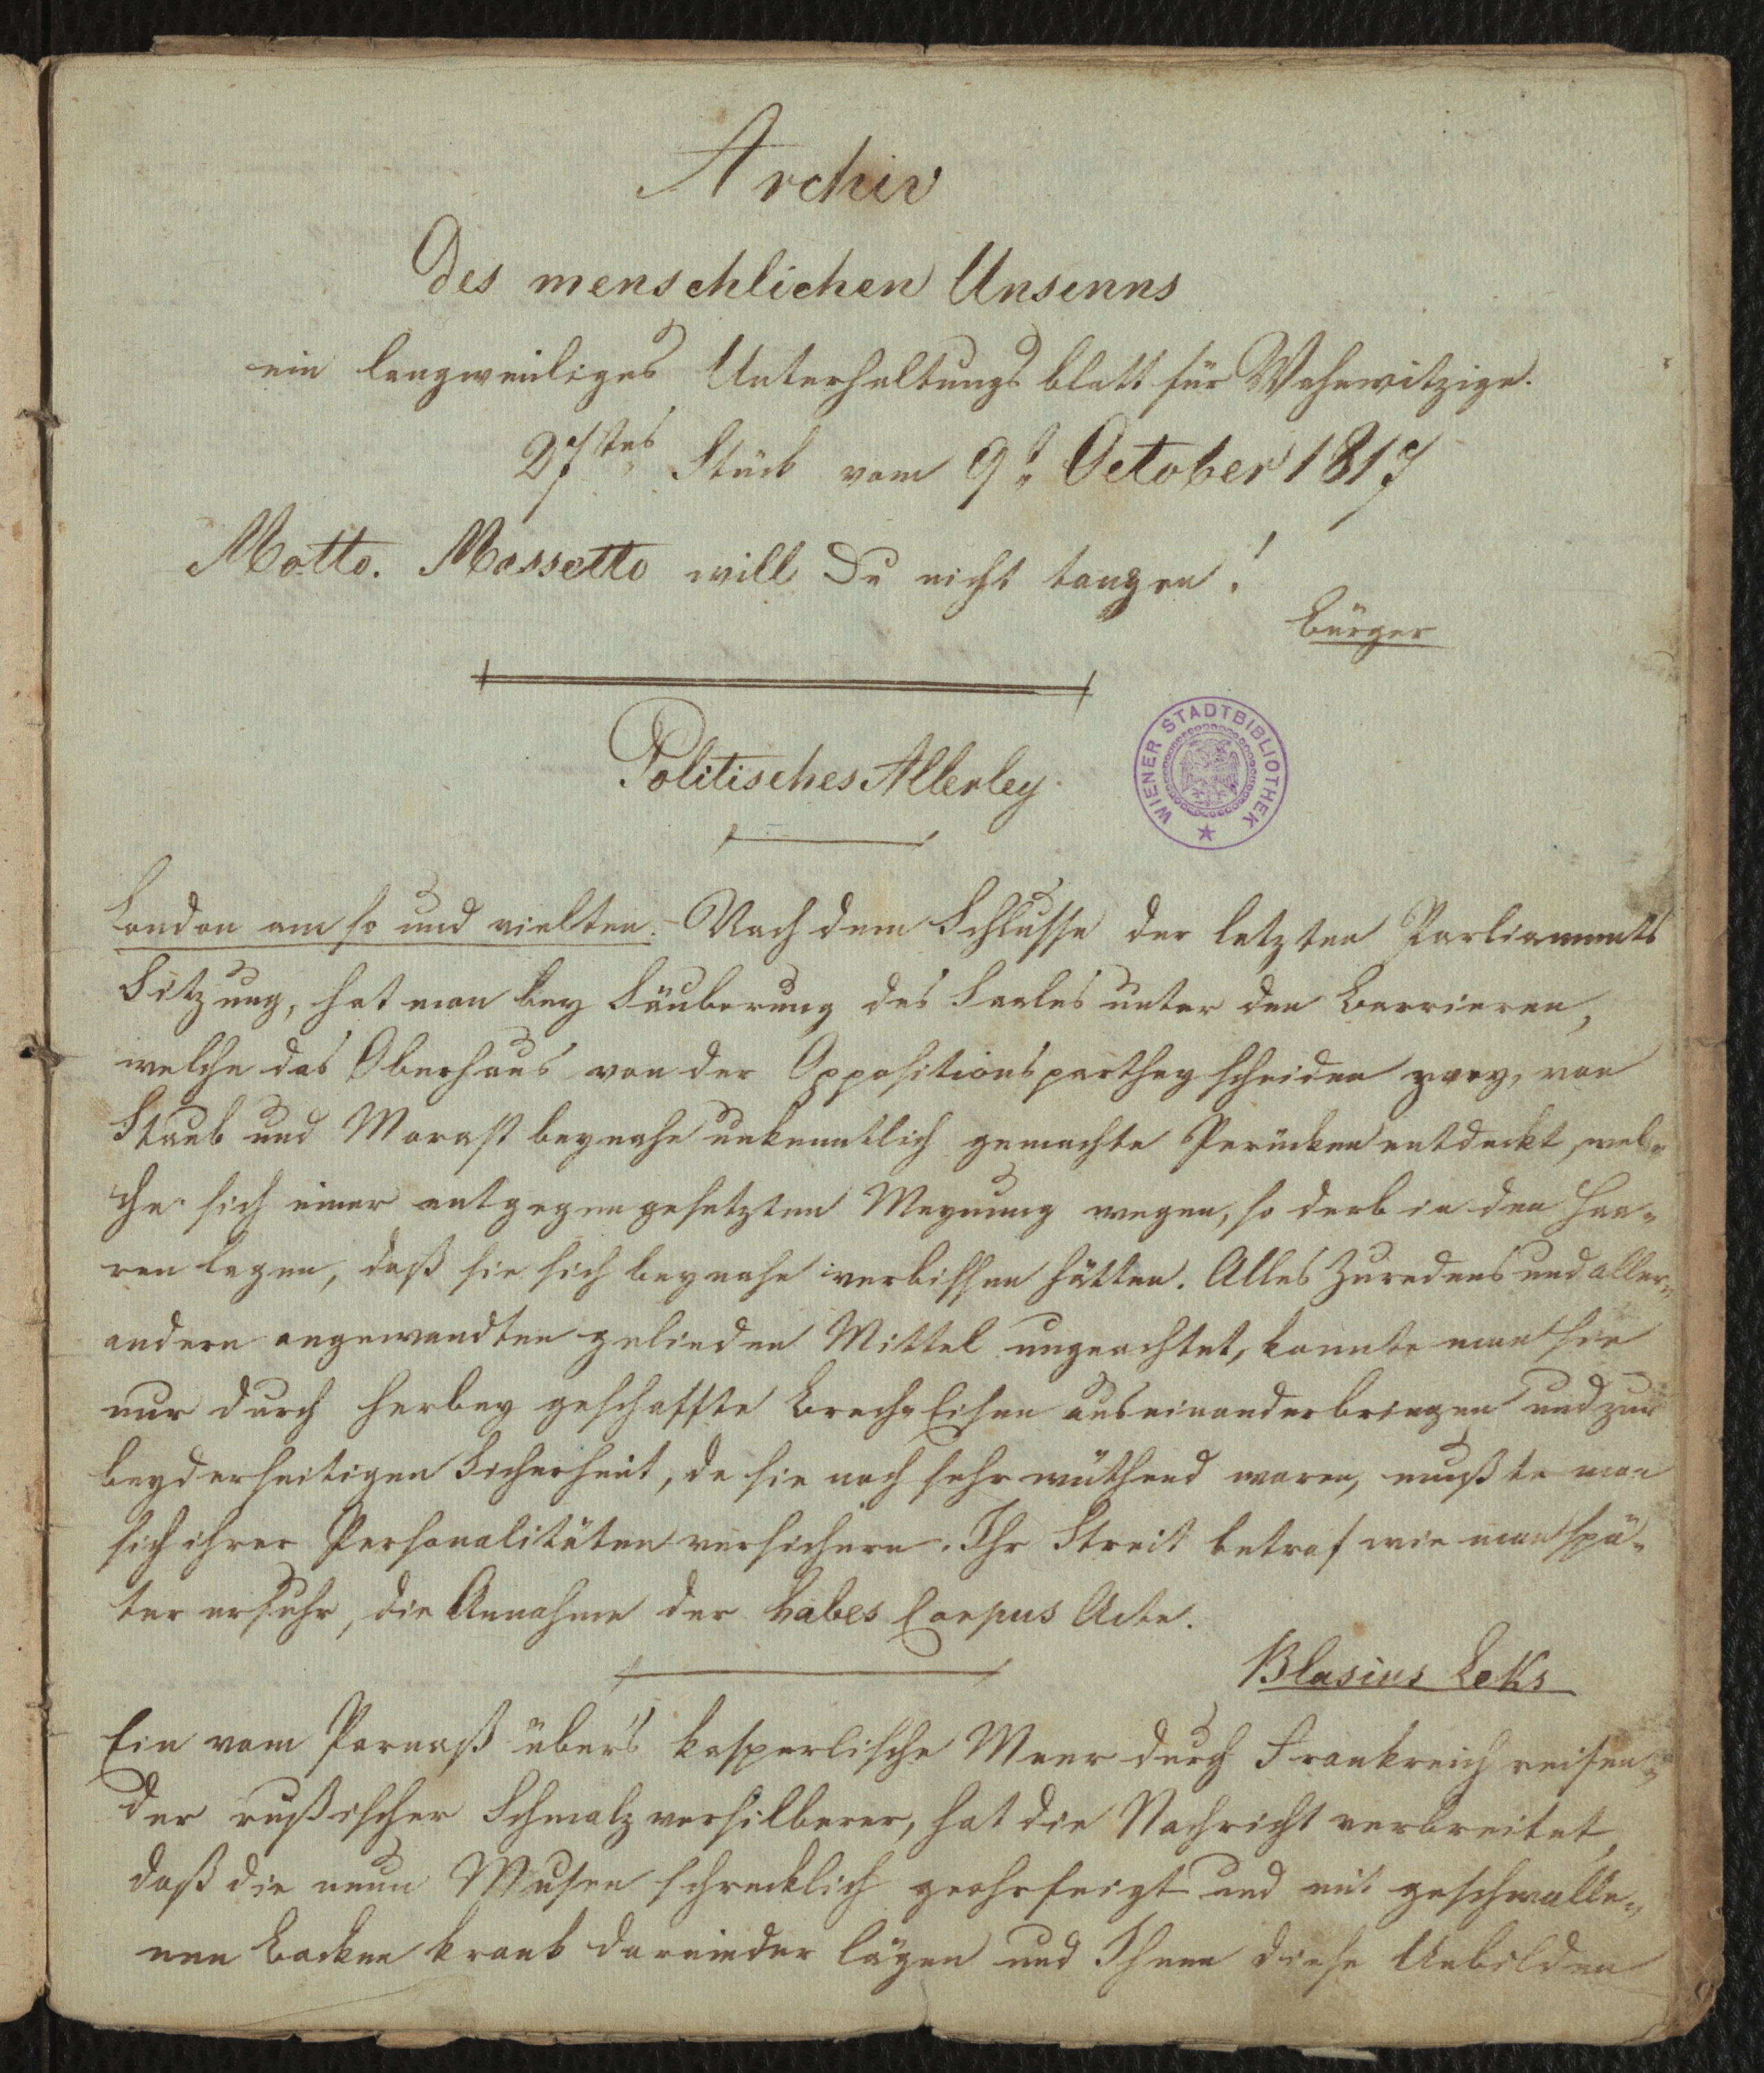 Archiv
Des menschlichen Unsinns
ein langweiliges Unterhaltungs blatt für Wahnwitzige.
27stes Stück vom 9t October 1817
Motto. Massetto will Du nicht tanzen!
Bürger
Politisches Allerley.
WIENER STADTBIBLIOTHEK
London am so und vielten. – Nach dem Schlusse der letzten Parliaments
Sitzung, hat man bey Säuberung des Saales unter den Barrieren,
welche das Oberhaus von der Oppositionsparthey scheiden zwey, von
Staub und Morast beynahe unkenntlich gemachte Perücken entdeckt, wel-
che sich einer entgegengesetzten Meynung wegen, so derb in den Haa-
ren lagen, daß sie sich beynahe verbissen hätten. Alles Zuredens und aller
andern angewandten gelinden Mittel ungeachtet, konnte man sie
nur durch herbey geschaffte Brech-Eisen auseinanderbringen und zur
beyderseitigen Sicherheit, da sie noch sehr wüthend waren, mußte man
sich ihrer Personalitäten versichern. Ihr Streit betraf wie man spä-
ter erfuhr, die Annahme der habes Corpus Acte.
Blasius Leks
Ein vom Parnaß über's kasperlische Meer durch Frankreich reisen-
der rußischer Schmalzversilberer, hat die Nachricht verbreitet,
daß die neun Musen schrecklich geohrfeigt und mit geschwolle-
nen Backen krank darnieder lägen und Ihnen diese Unbilden